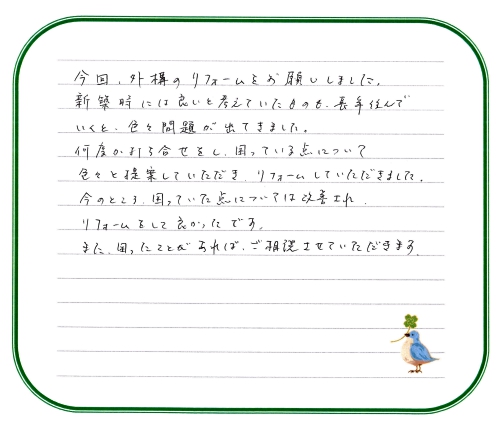 今回、外構のリフォームをお願いしました。
新築時には良いと考えていたものも、長年住んで
いくと、色々問題が出てきました。
何度か打ち合せをし、困っている点について
色々と提案していただき、リフォームしていただきました。
今のところ、困っていた点については改善され、
リフォームをして良かったです。
また、困ったことがあれば、ご相談させていただきます。